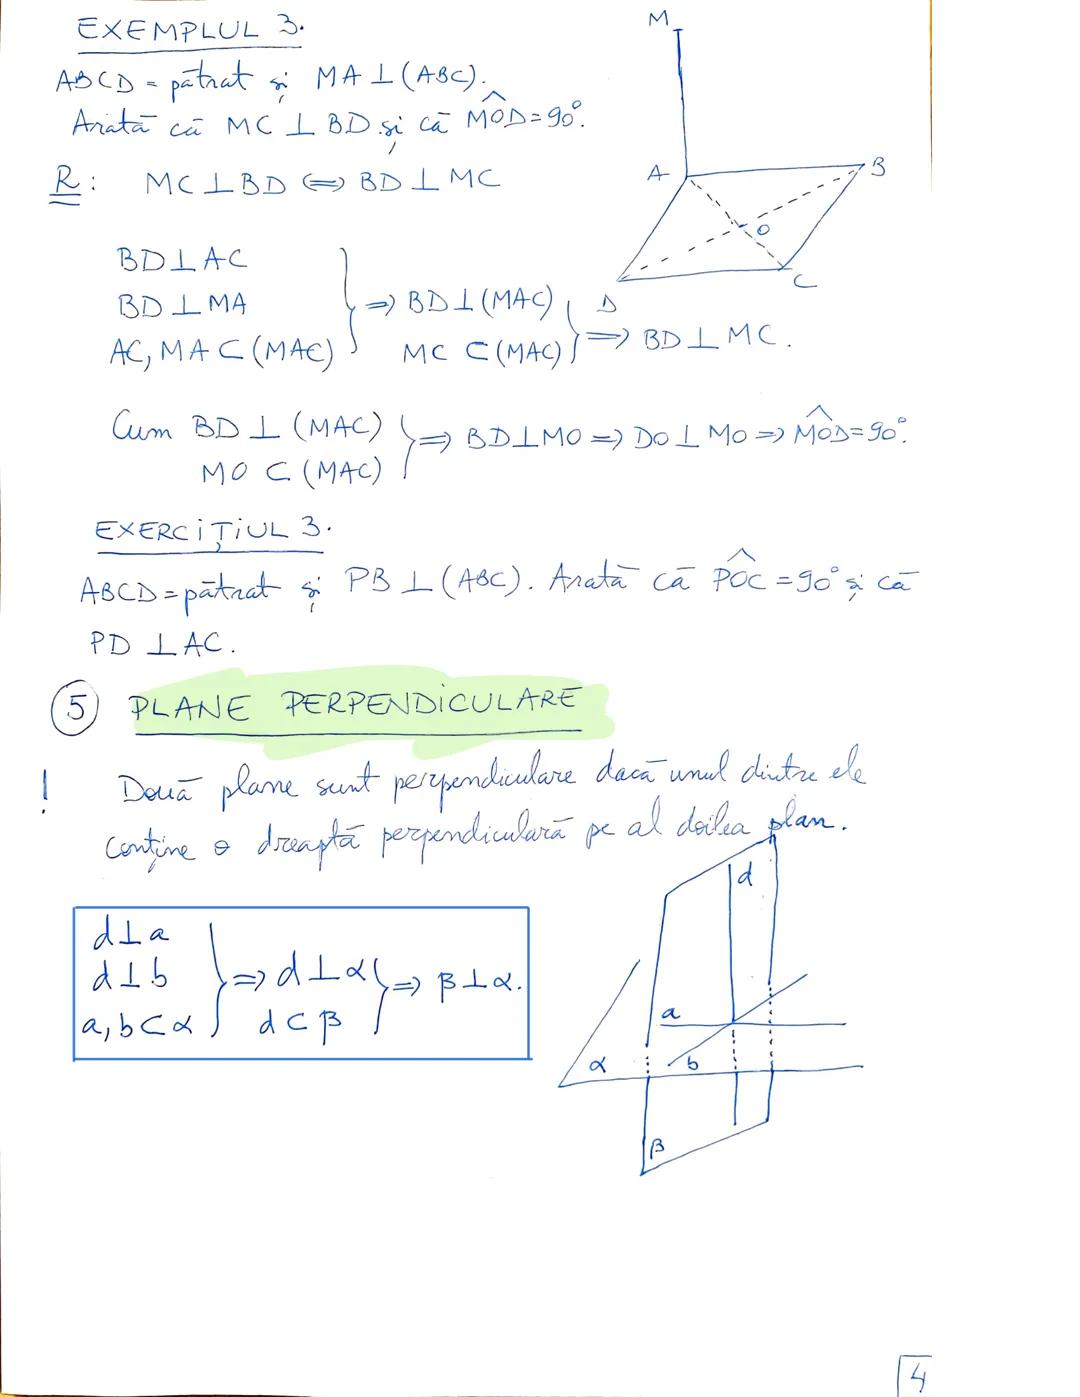 EXEMPLUL 3.
ABCD = pătrat și MA ⊥ (ABC).
Arată că MC ⊥ BD și că MÔD = 90°.
R: MC ⊥ BD ⟺ BD ⊥ MC
M
A
B
O
C
D
BD ⊥ AC
BD ⊥ MA
AC, MA ⊂ (MAC)
⇒ BD ⊥ (MAC)
MC ⊂ (MAC)
⇒ BD ⊥ MC.
Cum BD ⊥ (MAC)
MO ⊂ (MAC)
⇒ BD ⊥ MO ⇒ DO ⊥ MO ⇒ MÔD = 90°.
EXERCIȚIUL 3.
ABCD = pătrat și PB ⊥ (ABC). Arată că PÔC = 90° și că
PD ⊥ AC.
5 PLANE PERPENDICULARE
! Două plane sunt perpendiculare dacă unul dintre ele
conține o dreaptă perpendiculară pe al doilea plan.
d ⊥ a
d ⊥ b
a, b ⊂ α
⇒ d ⊥ α
d ⊂ β
⇒ β ⊥ α.
d
a
α
b
β
4